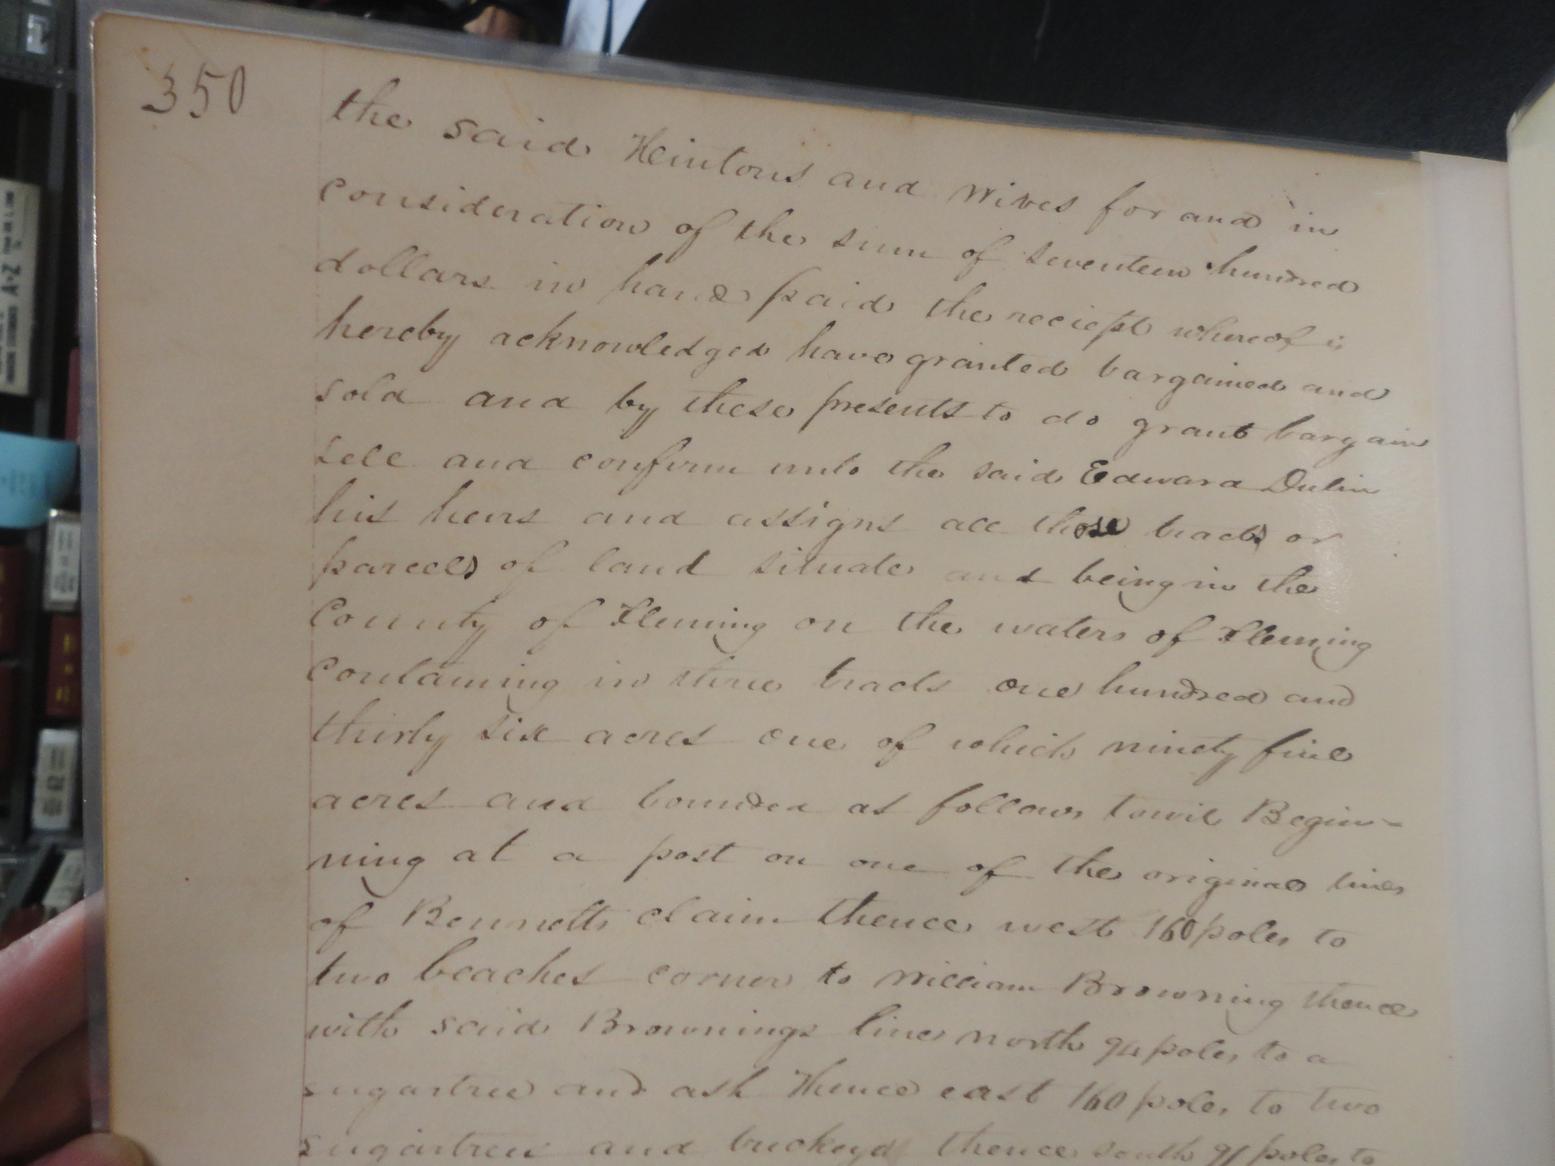 350
the said Hintons and wives for and in
consideration of the sum of seventeen hundred
dollars in hand paid the reciept whereof is
hereby acknowledged have granted bargained and
sold and by these presents to do grant bargain
sell and confirm unto the said Edward Dulin
his heirs and assigns all those tracts or
parcels of land situate and being in the
County of Fleming on the waters of Fleming
containing in three tracts one hundred and
thirty six acres one of which ninety five
acres and bounded as follows towit Begin-
ning at a post on one of the original lines
of Bennetts claim thence west 160 poles to
two beaches corner to William Browning thence
with said Brownings line north poles to a
sugartree and ash thence east 160 poles to two
sugartrees and buckeye thence south poles to
A-Z